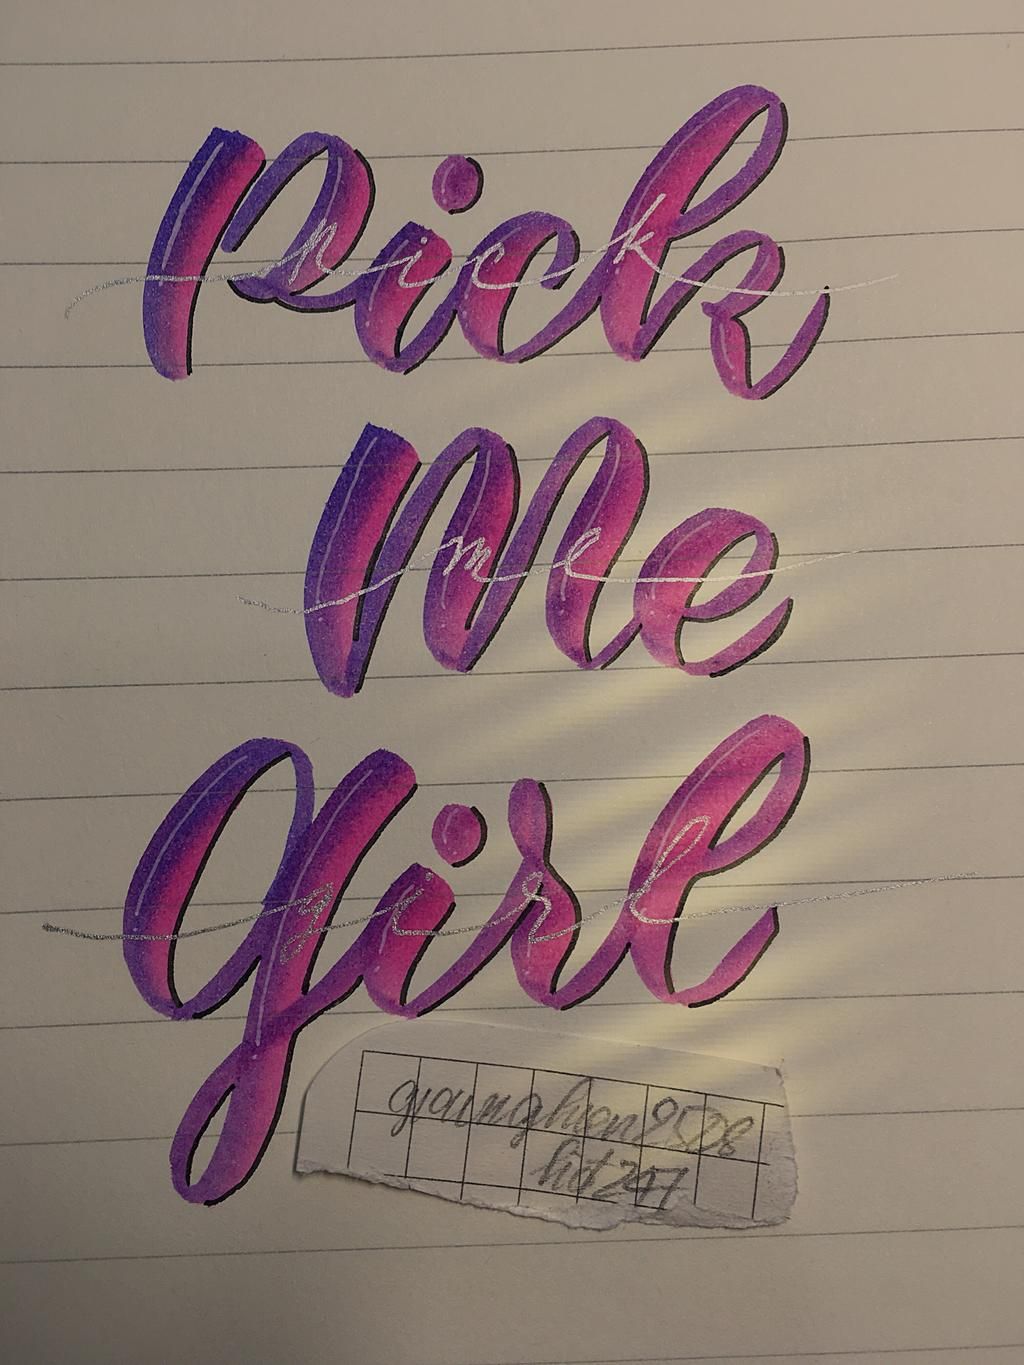 Pick
pick
Me
me
Girl
girl
gianghan2508
hid247